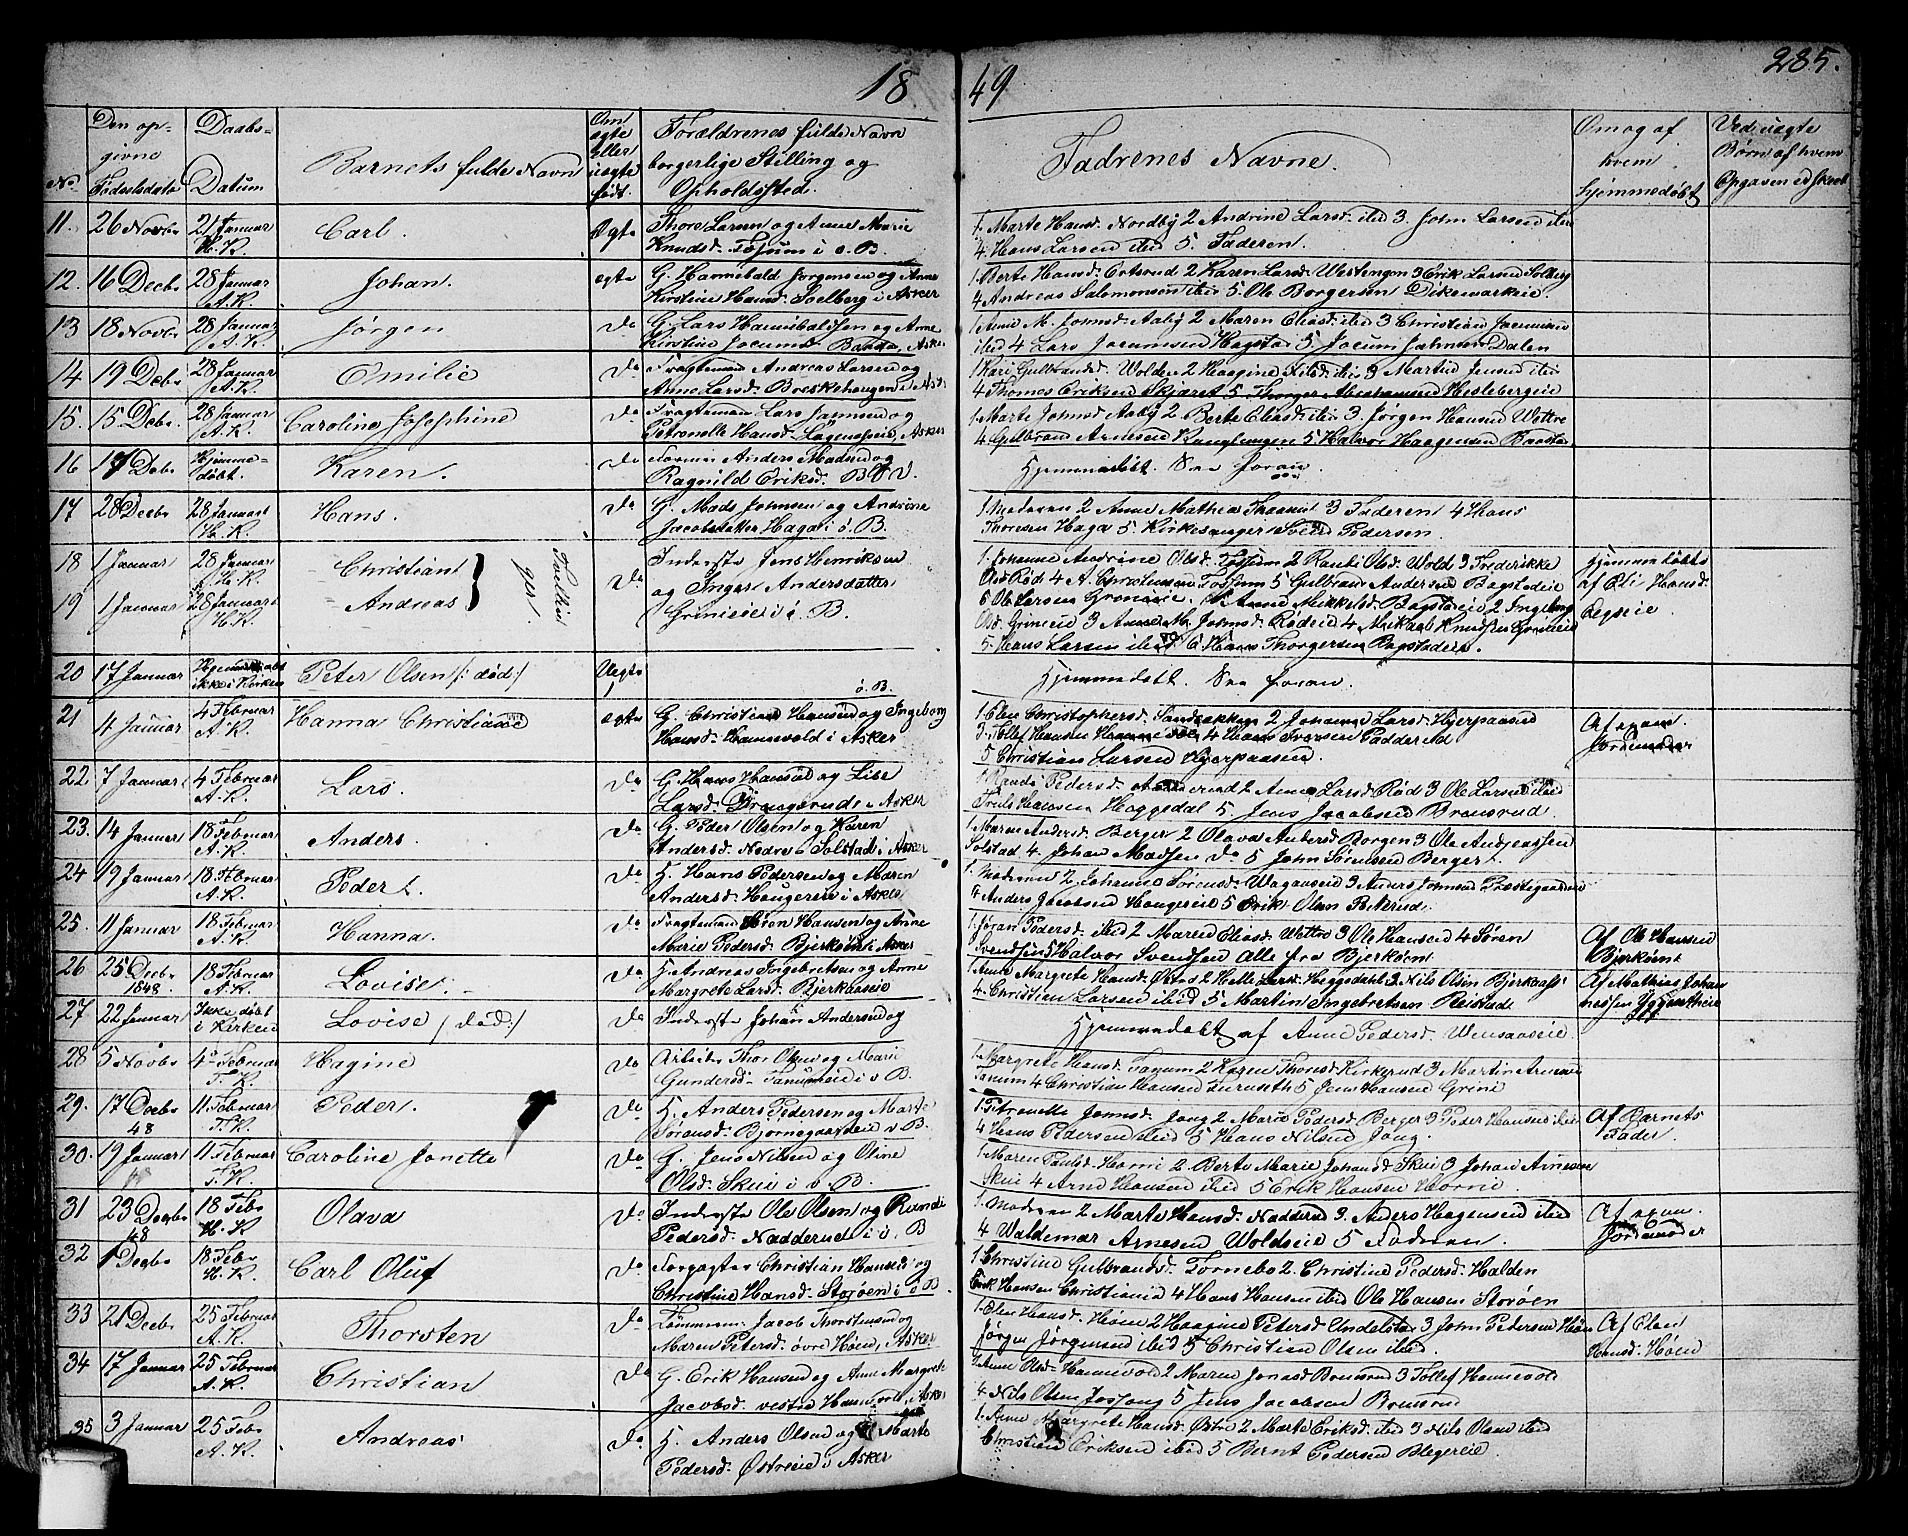 18 49 285.
No.
Den opgivne Fødselsdato
Daabs-Datum
Barnets fulde Navn
Om ægte eller uægte født.
Forældrenes fulde Navn borgerlige Stilling og Opholdssted.
Fadrenes Navne.
Om og af hvem hjemmedøbt
Ved uægte Børn af hvem Opgaven er skeet
11. 26 Novbr 21 Januar H.K. Carl. Ægte Thore Larsen og Anne Marie
Knudsd. Fossum i ø. B.
1. Marte Hansd. Nordby 2 Andrine Larsd. ibid 3. John Larsen ibid
4. Hans Larsen ibid 5. Faderen.
12. 16 Decbr 28 Januar A.K. Johan. ægte G. Hannibald Jørgensen og Anne
Kirstine Hansd. Soelberg i Asker
1. Berte Hansd. 2 Karen Larsd. Westengen 3 Erik Larsen Solberg
4 Andreas Salomonsen ibid 5. Ole Borgersen Dikemarkeie.
13 18 Novbr 28 Januar A.K. Jørgen do G. Lars Hannibaldsen og Anne
Kirstine
1 Anne M. Johnsd. Aaby 2 Maren Eliasd. ibid 3 Christian
ibid 4 Lars Hagstad 5 Dalen
14 19 Decbr 28 Januar A.K. Emilie do Fragtemand Andreas Larsen og
Anne Larsd.
1 Kari Gulbrandsd. Wolden 2 Haagine ibid 3 Martin Jensen ibid
4 Thomas Eriksen Skjæret 5 Thorger Abrahamsen
15. 15 Decbr. 28 Januar A.K. Caroline Josephine do Fragteman Lars Jansen og
Petronelle Hansd. Asker
1. Marte Johnsd. Aaby 2. Berte Eliasd. ibid 3. Jørgen Hansen Wettre
4 Gulbrand Arnesen 5. Halvor Haagensen
16 17 Decbr Hjemmedøbt. Karen. do Anders Madsen og
Ragnild Eriksd.
Hjemmedøbt. Saa foran.
17 28 Decbr 28 Januar H.K. Hans. do G. Mads Johnsen og Andrine
Jacobsdatter Haga i ø. B.
1. Moderen 2 Anne Mathea 3 Faderen 4 Hans
Thoresen Haga 5 Kirkesanger Svend Pedersen.
18 1 Januar 28 Januar H.K. Christian
19 1 Januar 28 Januar H.K. Andreas
Tvillinger. do Inderste Jens Henriksen
og Inger Andersdatter
Grinieie i v. B.
1. Johanne Andrine Olsd. Fossum 2 Randi Olsd. Wold 3 Frederikke
Olsd. Rød 4 A. Christiansen Fossum 5 Gulbran Andersen Bagstadeie
6 Ole Larsen Grinieie. 1 Anne Mikkelsd. Bagstadeie 2 Ingeborg
Olsd. Grinieie 3 Anne M. Johnsd. Rødeie 4 Knudsen Grinieie
5. Hans Larsen ibid 6. Hans Thorgersen
hjemmedøbte
af Eli Hansd.
20 17 Januar Hjemmedøbt ikke i Kirken Peter Olsen /: død:/ Uægte ø. B.
Hjemmedøbt. Saa foran.
21 4 Januar 4 Februar A.K. Hanna Christiane ægte G. Christian Hansen og Ingeborg
Hansd. Hannevold i Asker
1. Elen Christophersd. 2 Johanne Larsd. Hjerpaasen
3. Tollef Hansen 4 Hans Iversen Padderud
5 Christian Larsen Hjerpaasen.
Af exam. Jordemoder
22. 7 Januar 4 Februar A.K. Lars. do G. Hans Hansen og Lise
Larsd. i Asker
1 Randi Pedersd. 2 Anne Larsd. Rød 3 Ole Larsen ibid
Truls Hansen Heggedal 5 Jens Jacobsen Brønsrud.
23. 14 Januar 18 Februar A.K. Anders. do G. Peder Olsen og Karen
Andersd. Nedre Solstad i Asker
1. Maren Andersd. Berger 2 Olava Andersd. Borgen 3 Ole Andreassen
Solstad 4. Johan Madsen do 5 John Sørensen Berger.
24 19 Januar 18 Febr A.K. Peder. do H. Hans Pedersen og Maren
Andersd. Haugereie i Asker
1. Moderen 2. Johanne Sørensd. 3 Anders Johnsen Præstegaarden
4 Anders Jacobsen Haugereie 5 Erik Olsen
25. 11 Januar 18 Februar A.K. Hanna. do Fragtemand Søren Hansen og Anne
Marie Pedersd. Bjerkøen i Asker
1. Jøran Pedersd. ibid 2 Maren Eliasd. Wettre 3 Ole Hansen 4 Søren
Svendsen 5 Halvor Svendsen alle fra Bjerkøen.
Af Ole Hansen Bjerkøen
26 25 Decbr 1848. 18 Februar A.K. Lovise. do H. Andreas Ingebretsen og Anne
Margrete Larsd. Bjerkaaseie
1 Anne Margrete Hansd. 2 Helle Larsd. Heggedahl 3 Nils Olsen Bjerkaas
4. Christian Larsen ibid 5 Martin Ingebretsen Reistad.
Af Mathias Johannessen
27 22 Januar Ikke døbt i Kirken Lovise /: død:/ do Inderste Johan Andersen og
Hjemmedøbt af Anne Pedersd.
28 5 Novbr 4de Februar T.K. Hagine do Arbeider Thor Olsen og Marie
Gundersd. Tanumeie i v B.
1. Margrete Hansd. Tanum 2 Karen Thorsd. Kirkerud 3 Martin Arnesen
Tanum 4 Christian Hansen Furuseth 5 Jens Hansen Grini
29. 17 Decbr 48 11 Februar T.K. Peder. do H. Anders Pedersen og Marte
Sørensd. Bjørnegaardeie v B.
1. Petronelle Johnsd. Jong 2 Marie Pedersd. Berger 3 Peder Hansen ibid
4 Hans Pedersen ibid 5 Hans Nilsen Jong.
Af Barnets Fader.
30. 19 Januar 11 Februar T.K. Caroline Jonette do G. Jens Nilsen og Oline
Olsd. Skui i v. B.
1. Maren Paulsd. Horni 2. Berte Marie Johansd. Skui 3 Johan Arnesen
Skui 4 Arne Hansen ibid 5 Erik Hansen Horni.
31 23 Decbr 48 18 Febr H.K. Olava do Inderste Ole Olsen og Rande
Pedersd. Nadderud i ø. B
1. Moderen 2 Marte Hansd. Nadderud 3. Anders Hagensen ibid
4 Waldemar Arnesen Woldseie 5 Fadren.
Af exam. Jordemoder
32. 1 Decbr 18 Febr H.K. Carl Oluf do Forpagter Christian Hansen og
Christine Hansd. Storøen i ø B.
1 Christine Gulbrandsd. Tornebo 2. Christine Pedersd. Halden
Erik Hansen Christiania 4 Hans Hansen ibid Ole Hansen Storøen
33 21 Decbr 25 Februar A.K. Thorsten do Jacob Thorstensen og
Maren Petersd. øvre Høen, Asker
1. Elen Hansd. Høen 2 Haagine Petersd. Undelstad 3 John Pedersen Høen
Jørgen Jørgensen ibid 5 Christian Olsen ibid.
Af Elen Hansd. Høen
34 17 Januar 25 Februar A.K. Christian do G. Erik Hansen og Anne Margrete
Jacobsd. vestre Hannevold, Asker
1. Anne Olsd. Hannevold 2 Maren Jonasd. Brønsrud 3 Tollef Hannevold
4 Nils Olsen 5 Jens Jacobsen Brønsrud
35 3 Januar 25 Febr A.K. Andreas do H. Anders Olsen og Marte
Pedersd. Østreeie i Asker
1. Anne Margrete Hansd. Østre 2 Marte Eriksd. ibid 3 Nils Olsen ibid
Christian Eriksen ibid 5 Bernt Pedersen